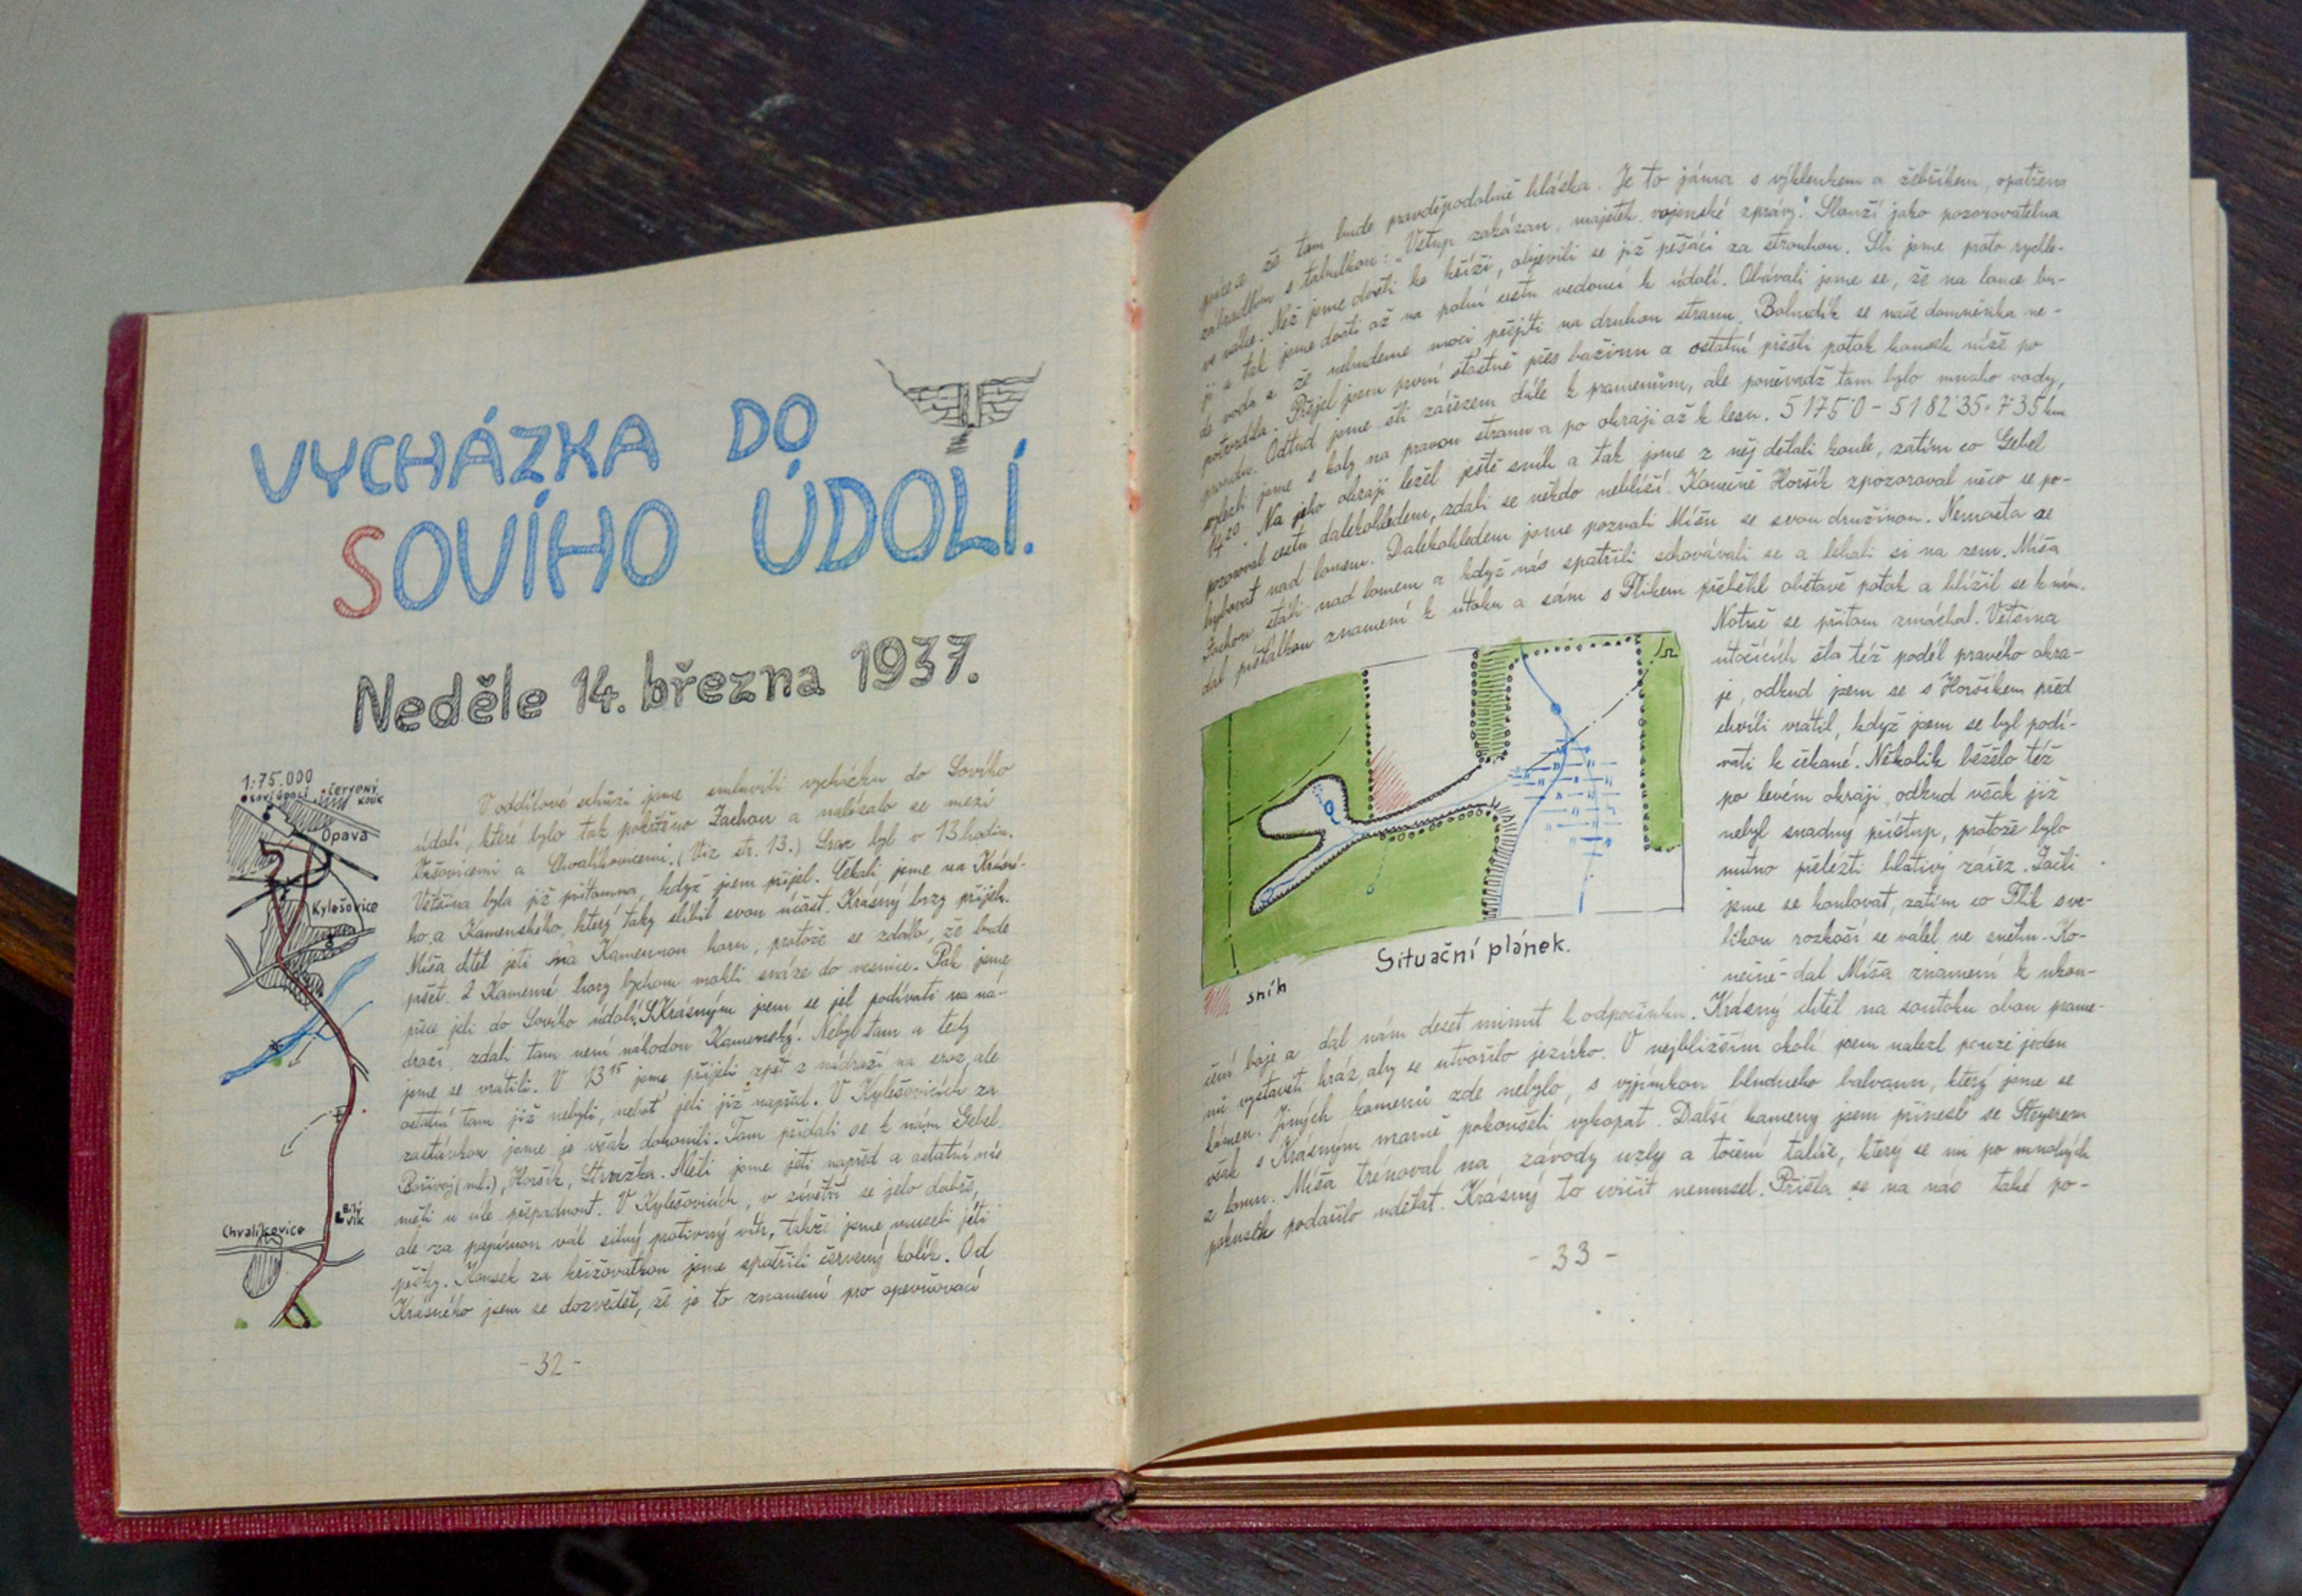 VYCHÁZKA DO
SOVÍHO ÚDOLÍ.
Neděle 14. března 1937.
1:75.000
SOVÍ ÚDOLÍ ČERVENÝ
KOLÍK
Opava
Kylešovice
Bílý
vlk
Chvalíkovice
V oddílové schůzi jsme smluvili vycházku do Sovího
údolí, které bylo tak pokřtěno Zachou a nalézalo se mezi
a Chvalíkovicemi. (Viz str. 13.) Sraz byl v 13 hodin.
Většina byla již přítomna, když jsem přijel. Čekali jsme na Krásné-
ho a Kamenského, který taky slíbil svou účast. Krásný brzy přijel.
Míša chtěl jeti na Kamennou horu, protože se zdálo, že bude
pršet. Z Kamenné hory bychom mohli snáze do vesnice. Pak jsme
přece jeli do Sovího údolí. S Krásným jsem se jel podívati na ná-
draží, zdali tam není náhodou Kamenský. Nebyl tam a tedy
jsme se vrátili. V 13 15 jsme přijeli zpět z nádraží na sraz, ale
ostatní tam již nebyli, neboť jeli již napřed. V Kylešovicích za
zastávkou jsme je však dohonili. Tam přidali se k nám Gebel
Bořivoj (ml.), Horšík, Stružka. Měli jsme jeti napřed a ostatní nás
měli u cíle přepadnout. V Kylešovicích, v závětří se jelo dobře,
ale za papírnou vál silný protivný vítr, takže jsme museli jíti
pěšky. Kousek za křižovatkou jsme spatřili červený kolík. Od
Krásného jsem se dozvěděl, že je to znamení pro opevňovací
- 32 -
práce a že tam bude pravděpodobně hláska. Je to jáma s výklenkem a žebříkem, opatřena
zábradlím s tabulkou: „Vstup zakázan, majetek vojenské zprávy." Slouží jako pozorovatelna
ve válce. Než jsme došli ke kříži, objevili se již pěšáci za strouhou. Šli jsme proto rychle-
ji a tak jsme došli až na polní cestu vedoucí k údolí. Obávali jsme se, že na louce bu-
de voda a že nebudeme moci přejíti na druhou stranu. Bohudík se naše domněnka ne-
potvrdila. Přejel jsem první šťastně přes bažinu a ostatní přešli potok kousek níže po
proudu. Odtud jsme šli zářezem dále k pramenům, ale poněvadž tam bylo mnoho vody,
vylezli jsme s koly na pravou stranu a po okraji až k lesu. 5175˙0 - 5182˙35 = 7˙35 km
14 20. Na jeho okraji ležel ještě sníh a tak jsme z něj dělali koule, zatím co Gebel
pozoroval cestu dalekohledem, zdali se někdo neblíží. Konečně Horšík zpozoroval něco se po-
hybovat nad lomem. Dalekohledem jsme poznali Míšu se svou družinou. Nemasta se
Zachou stáli nad lomem a když nás spatřili schovávali se a lehali si na zem. Míša
dal píšťalkou znamení k útoku a sám s Flikem přeběhl obětavě potok a blížil se k nám.
Notně se přitom zmáchal. Většina
útočících šla též podél pravého okra-
je, odkud jsem se s Horšíkem před
chvílí vrátil, když jsem se byl podí-
vati k čekané. Několik běželo též
po levém okraji, odkud však již
nebyl snadný přístup, protože bylo
nutno přelézti blativý zářez. Začli
jsme se koulovat, zatím co Flik s ve-
likou rozkoší se válel ve sněhu. Ko-
nečně dal Míša znamení k ukon-
Situační plánek.
sníh
čení boje a dal nám deset minut k odpočinku. Krásný chtěl na soutoku obou prame-
nů vystavěti hráz, aby se utvořilo jezírko. V nejbližším okolí jsem nalezl pouze jeden
kámen. Jiných kamenů zde nebylo, s vyjímkou bludného balvanu, který jsme se
však s Krásným marně pokoušeli vykopat. Další kameny jsem přinesl se Steyerem
z lomu. Míša trénoval na závody uzly a točení talíře, který se mi po mnohých
pokusech podařilo udělat. Krásný to cvičit nemusel. Přišla se na nás také po-
- 33 -